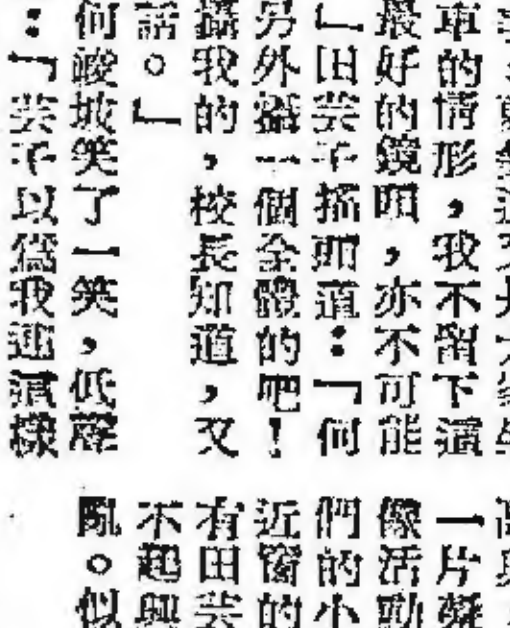 車的情形,我不留下這
最好的鏡頭,亦不可能
」田芸子搖頭道:「何
另外攝一個全體的吧!
攝我的,校長知道,又
話。」
何峻坡笑了一笑,低聲
:「芸子以爲我連這樣
一片
像活動
們的小
近窗的
有田芸
不起興
亂。似